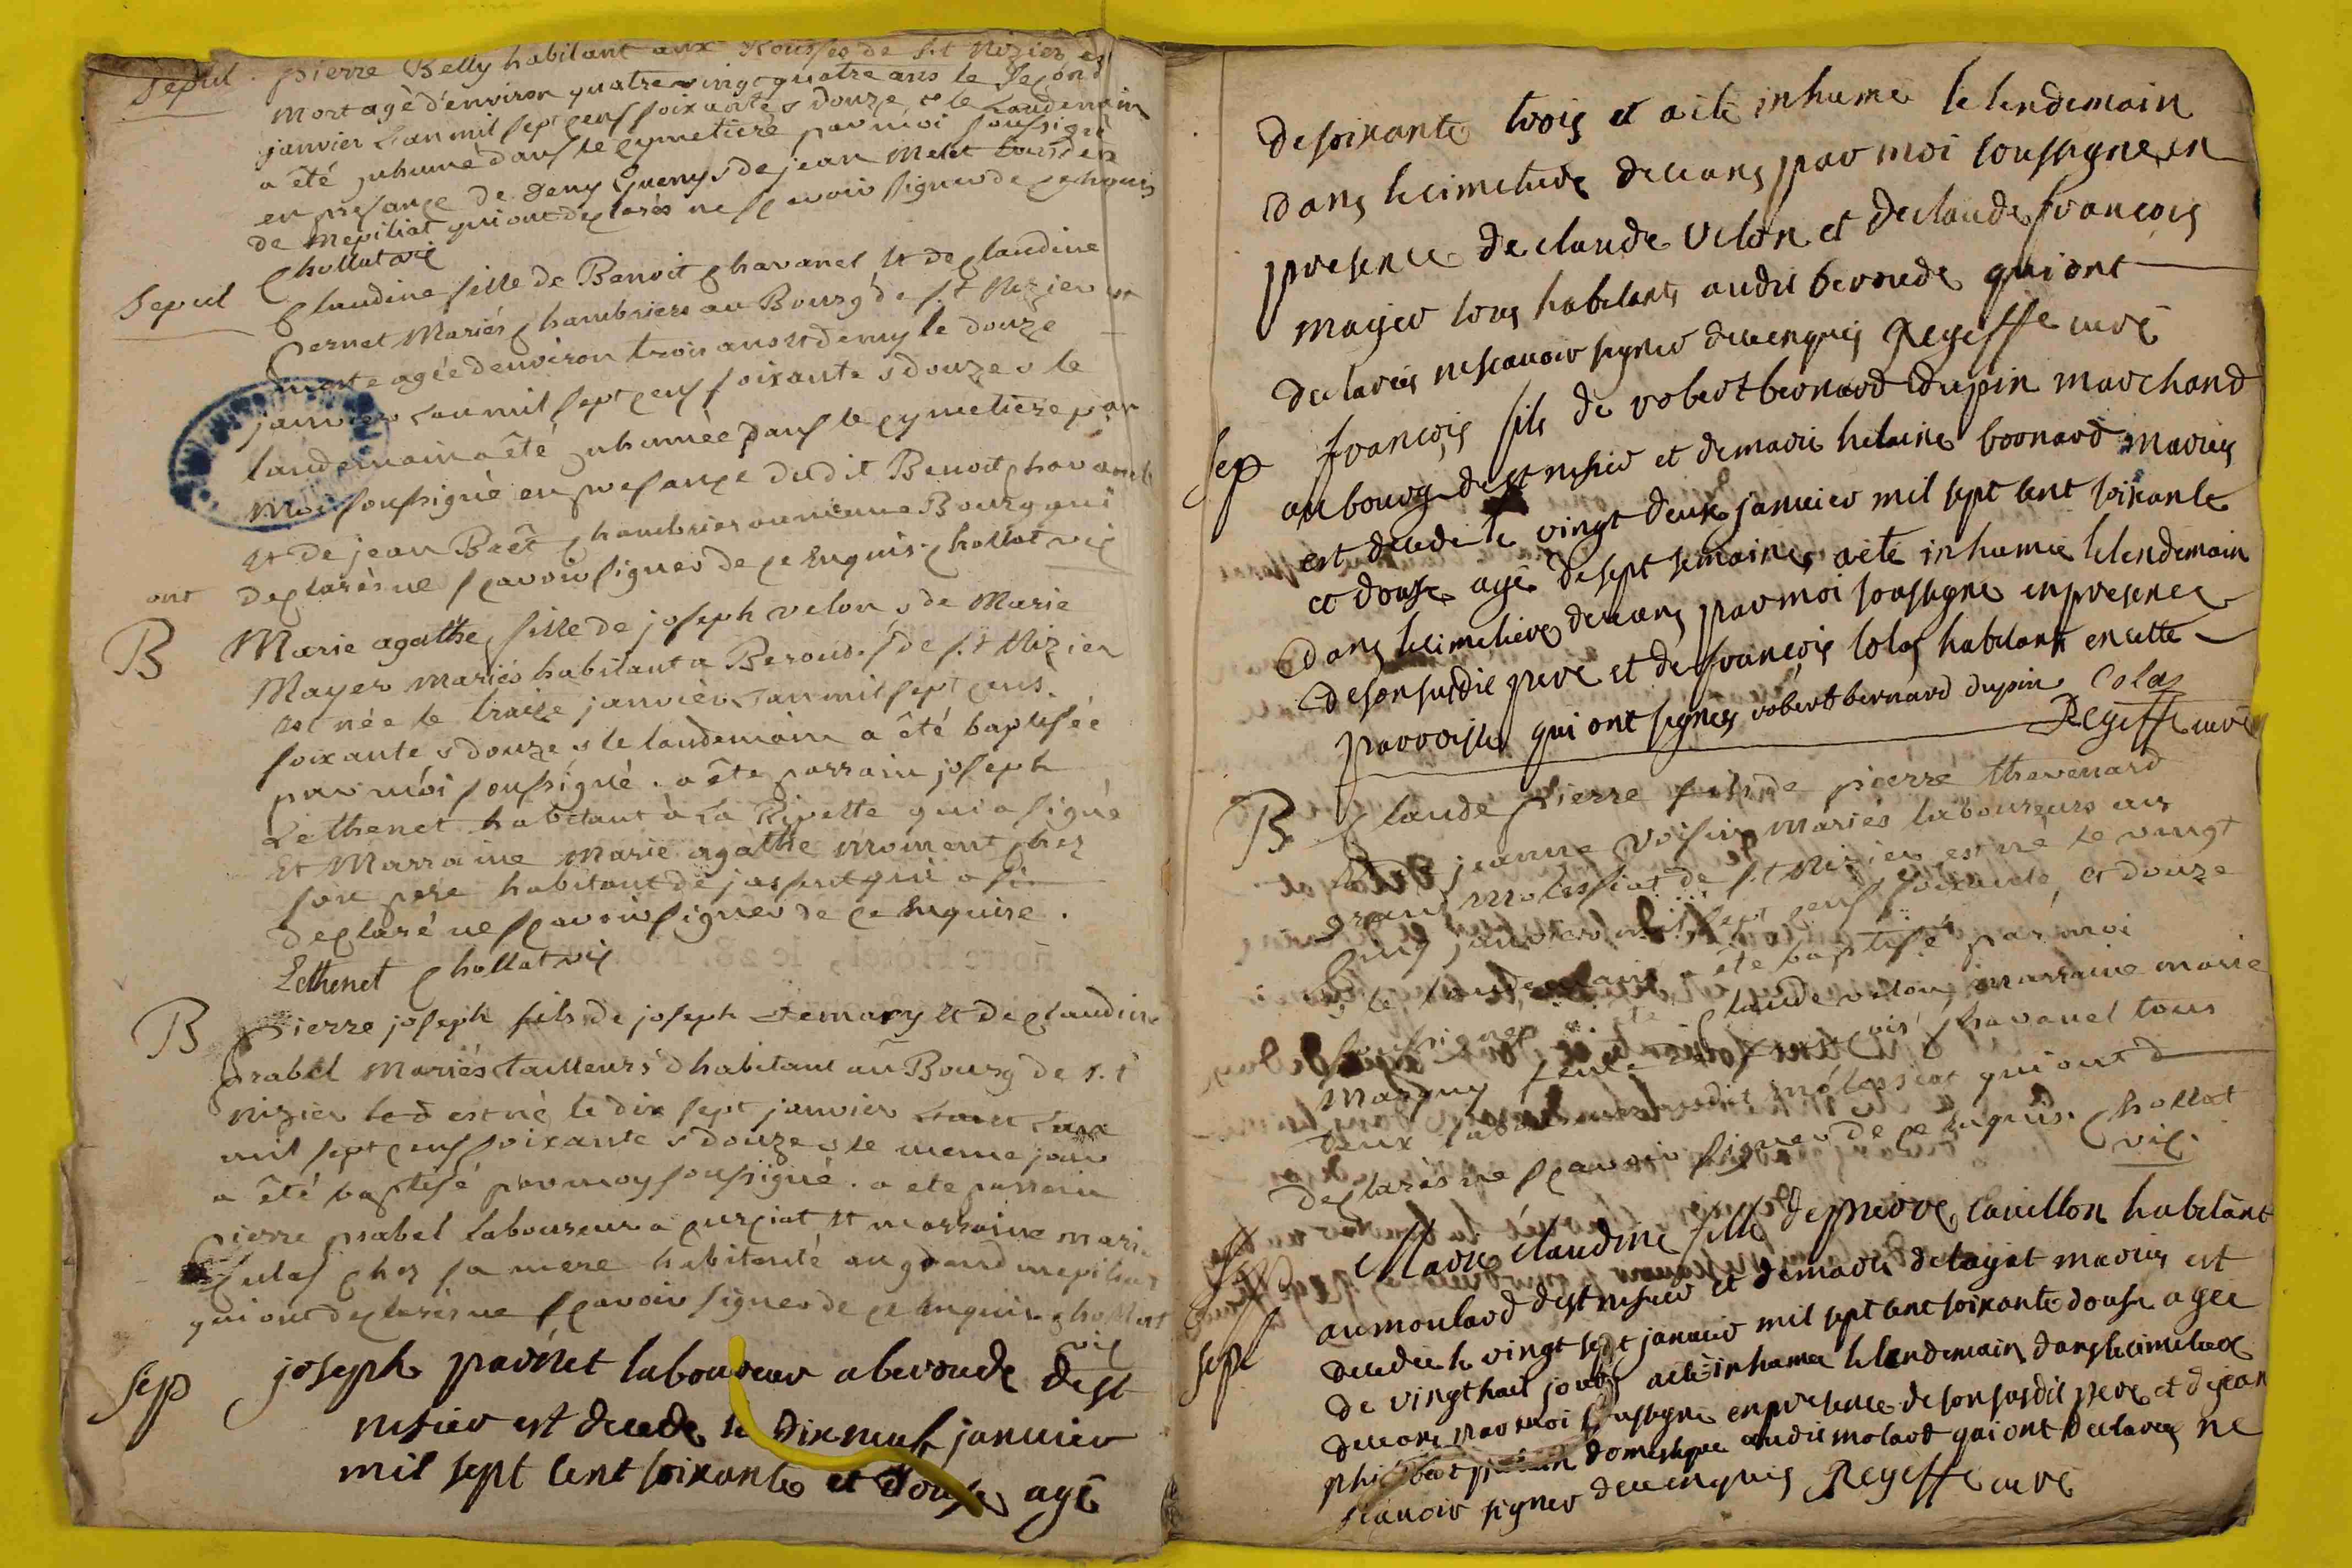 Sepul. pierre Belly habitant aux Rousses de St Nizier est
mort agé d'environ quatre vingt quatre ans le second
janvier L'an mil sept cens soixante & douze & le Landemain
a été inhumé dans le cymetiere par moi soussigné
en presance de Deny Gueny & de jean Meret tous deux
de Mepiliat qui ont declarés ne scavoir signer de ce enquis
chollat vic
Sepul Claudine fille de Benoit chavanel et de claudine
Pernet Mariés chambriers au Bourg de St Nizier est
morte agée denviron trois ans et demy le douze
janvier L'an mil sept cens soixante & douze & le
landemain a été inhumée dans le cymetiere par
moi soussigné en presance dudit Benoit chavanel
et de jean Brêt chambrier au meme Bourg qui
ont declarés ne scavoir signer de ce enquis. chollat vic
B Marie agathe fille de joseph velon & de Marie
Mayer mariés habitant a Beroude de St Nizier
est née le traize janvier L'an mil sept cens
soixante & douze & le landemain a été baptisée
par môi soussigné. a été parrain joseph
Lethenet habitant à La Ripette qui a signé
Et Marraine Marie agathe moiment chez
son pere habitant de jassent qui a
declaré ne scavoir signer de ce enquise.
Lethenet chollat vic
B Pierre joseph fils de joseph Demary et de claudine
prabel Mariés tailleurs d habitant au Bourg de St
nizier led est né le dix sept janvier L'an
mil sept cens soixante & douze & le meme jour
a été baptisé par moy soussigné. a ete parrain
pierre prabel laboureur a curciat et marraine marie
chez sa mere habitante au grand mepiliat
qui ont declarés ne scavoir signer de ce enquis chollat
vic
sep joseph parnet laboureur aberoude dest
nisier est decede le dix neuf janvier
mil sept cent soixante et douse agé
de soixante trois et a ete inhumé le lendemain
dans le cimetiere deceans par moi soussigne en
presence de claude velon et de claude francois
mayer tous habitants audit beroude qui ont
declarés ne scavoir signer dece enquis Regeffe curé
sep francois fils de robert bernard dupin marchand
au bourg de st nisier et de marie helaine bonnard mariés
est decede le vingt deux janvier mil sept cent soixante
et douse agé de sept semaines a ete inhumé le lendemain
dans le cimetiere deceans par moi soussigne en presence
de son susdit pere et de francois colas habitant en cette
parroisse qui ont signés robert bernard dupin Colas
Regeffe curé
B Claude pierre fils de pierre thevenard
et de jeanne Voisin Mariés laboureurs au
grand molessiat de St Nizier est né le vingt
cinq janvier mil sept cens soixante et douze
& le landemain a été baptisé par moi
soussigné a été claude velon, marraine marie
Marguy chavanel tous
deux dit molessiat qui ont
declarés ne scavoir signer de ce enquis. chollat
vic.
sep Marie claudine fille de pierre cavillon habitant
au moulard dest nisier et de marie delayat mariés est
sep decedee le vingt sept janvier mil sept cent soixante douse agee
de vingt huit jours a ete inhumee le lendemain dans le cimetiere
deceans par moi soussigne en presence de son susdit pere et de jean
domestique audit molard qui ont declarés ne
scavoir signer dece enquis Regeffe curé